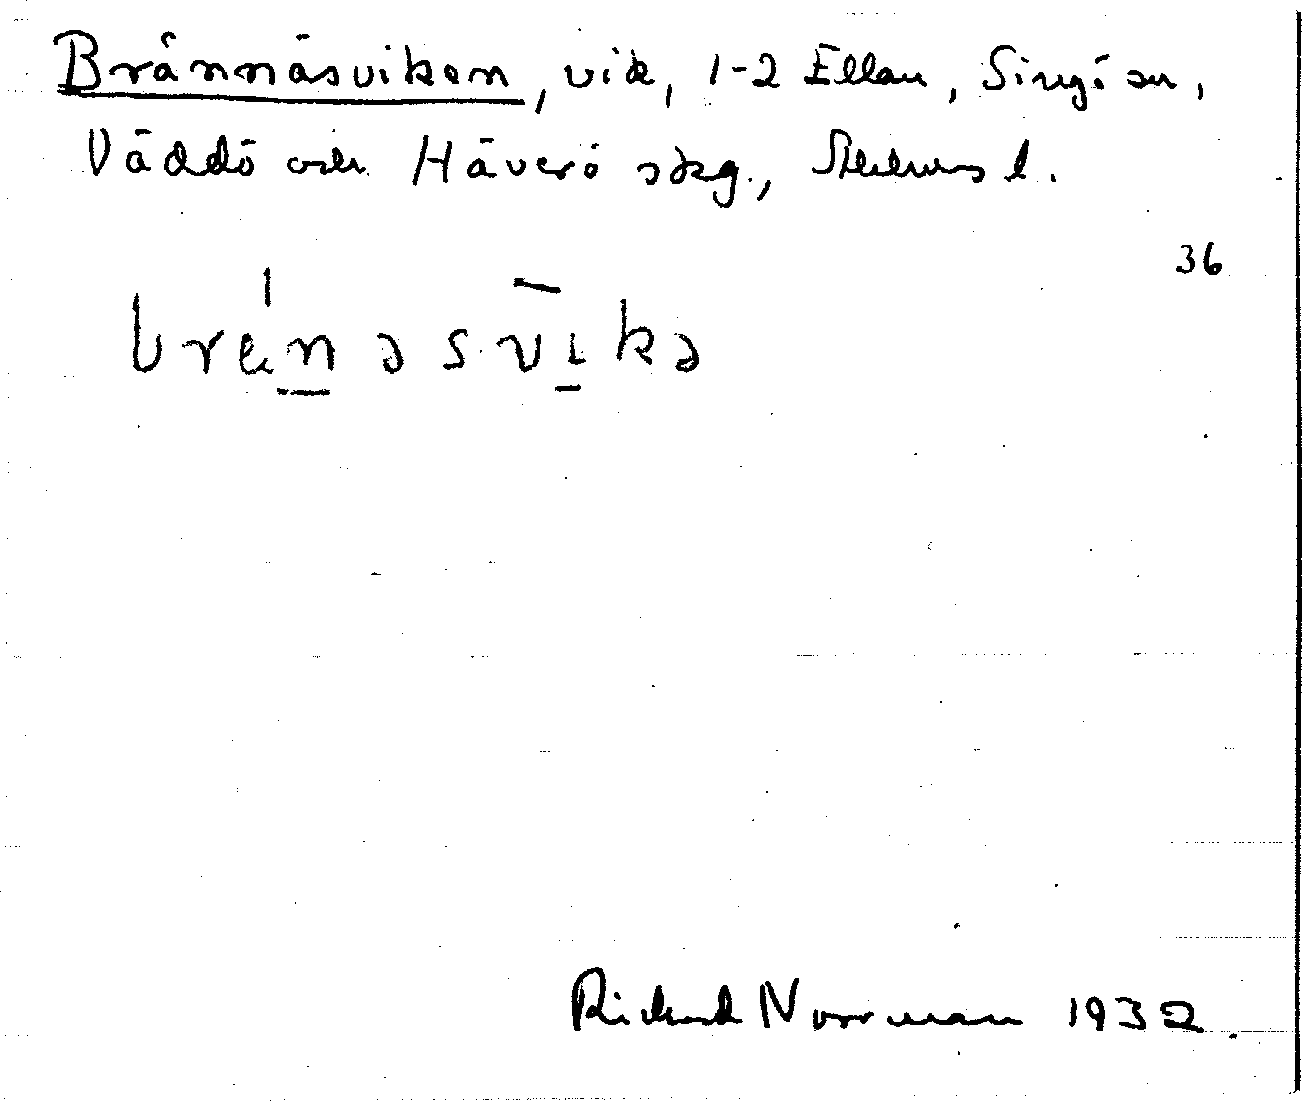 Brännäsviken, vik, 1-2 Ellan, Singö sn,
Väddö och Häverö skg., Stockholms l.
36
bränəsvikə
Rickard Norrman 1932.